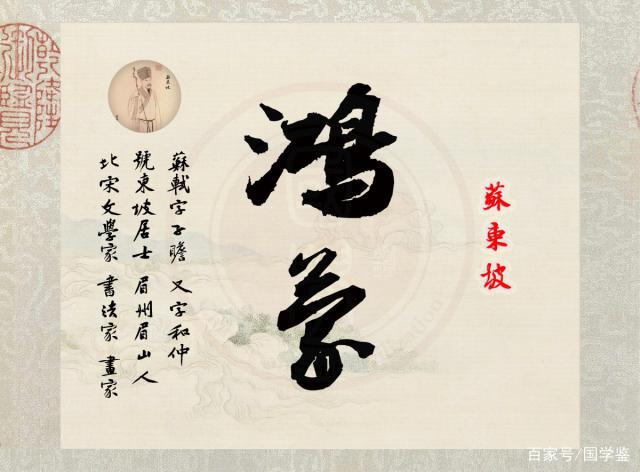 蘇東坡
鴻蒙
蘇軾字子瞻 又字和仲
號東坡居士 眉州眉山人
北宋文學家 書法家 畫家
百家号/国学鉴